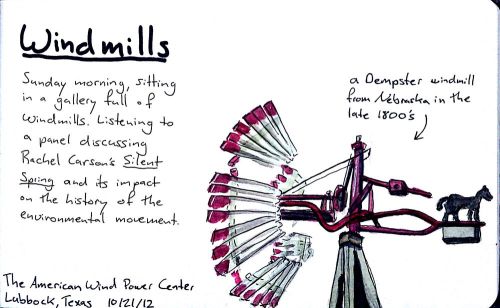 Windmills
Sunday morning, sitting
in a gallery full of
windmills. Listening to
a panel discussing
Rachel Carson's Silent
Spring and its impact
on the history of the
environmental movement.
a Dempster windmill
from Nebraska in the
late 1800's
The American Wind Power Center
Lubbock, Texas 10/21/12